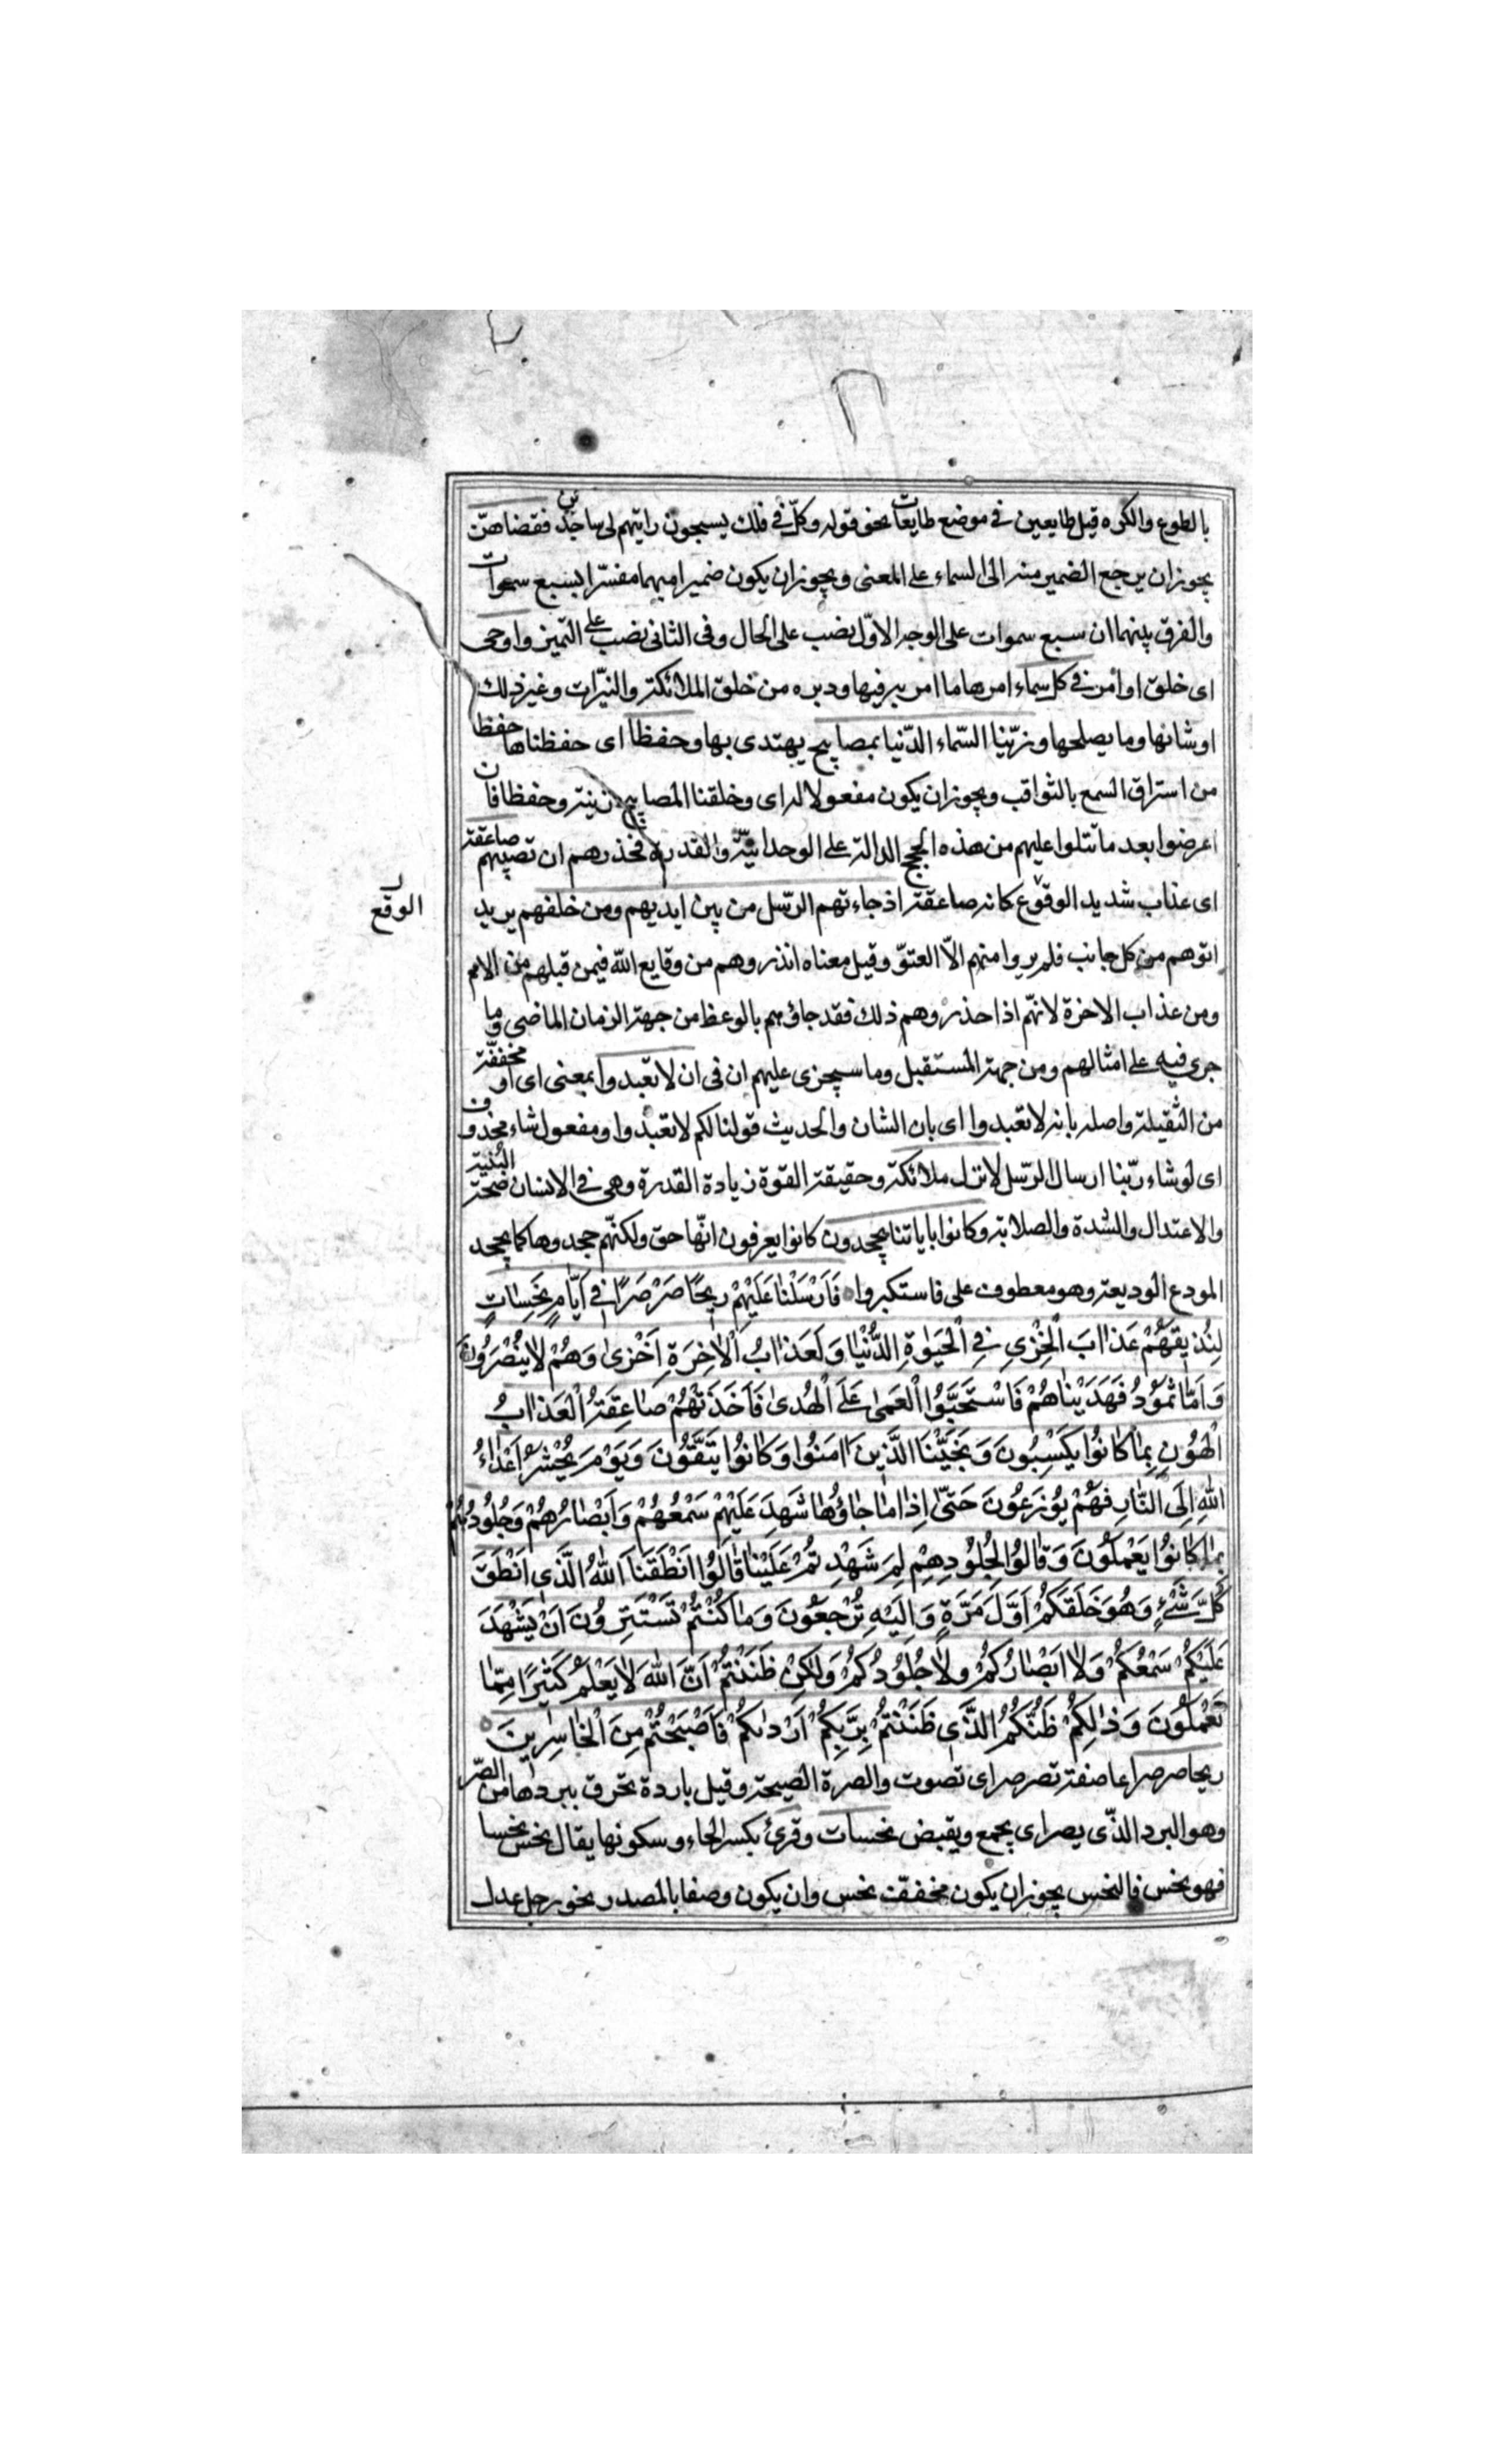 بالطوع والكره قيل طايعين في موضع طايعات نحو قوله وكلّ في فلك يسبحون رايتهم لي ساجدين فقضاهنّ
يجوز ان يرجع الضمير منه الى السماء على المعنى ويجوز ان يكون ضميرا مبهما مفسّرا بسبع سموات
والفرق بينهما ان سبع سموات على الوجه الاوّل نصب على الحال وفى الثانى نصب على التّميز واوحى
اى خلق او امر في كل سماء امرها ما امر به فيها ودبره من خلق الملائكة والنيّرات وغير ذلك
او شانها وما يصلحها وزيّنا السّماء الدّنيا بمصابيح يهتدى بها وحفظا اى حفظناها حفظا
من استراق السمع بالثواقب ويجوز ان يكون مفعولا له اى وخلقنا المصابيح زينة وحفظا فان
اعرضوا بعد ما تتلوا عليهم من هذه الحجج الدالة على الوحدانيّة والقدرة فحذرهم ان تصيبهم صاعقة
اى عذاب شديد الوقوع كانه صاعقة اذ جاءتهم الرّسل من بين ايديهم ومن خلفهم يريد
الوقع
اتوهم من كل جانب فلم يروا منهم الّا العتوّ وقيل معناه انذروهم من وقايع الله فيمن قبلهم من الامم
ومن عذاب الاخرة لانهّم اذا حذروهم ذلك فقد جاؤهم بالوعظ من جهة الزمان الماضى وما
جرى فيه على امثالهم ومن جهة المستقبل وما سيجزى عليهم ان فى ان لا تعبدوا بمعنى اى او مخففّة
من الثقيلة واصله بانه لا تعبدوا اى بان الشان والحديث قولنا لكم لا تعبدوا ومفعول شاء محذوف
اى لو شاء ربّنا ارسال الرّسل لانزل ملائكة وحقيقة القوة زيادة القدرة وهى في الانسان صحّة البُنية
والاعتدال والشدة والصلابة وكانوا باياتنا يجحدون كانوا يعرفون انّها حق ولكنّهم جحدوها كما يجحد
المودع الوديعة وهو معطوف على فاستكبروا فَاَرْسَلْنَا عَلَيْهِمْ رِيحًا صَرْصَرًا فِي اَيَّامٍ نَحِسَاتٍ
لِنُذيقَهُمْ عَذابَ الْخِزْىِ فِي الْحَيوةِ الدُّنْيا وَلَعَذابُ الْاخِرَةِ اَخْزى وَهُمْ لا يُنْصَرُونَ
وَاَمّا ثَمُودُ فَهَدَيْناهُمْ فَاسْتَحَبُّوا الْعَمى عَلَى الْهُدى فَاَخَذَتْهُمْ صاعِقَةُ الْعَذابِ
الْهُونِ بِما كانُوا يَكْسِبُونَ وَنَجَّيْنَا الَّذينَ امَنُوا وَكانُوا يَتَّقُونَ وَيَوْمَ يُحْشَرُ اَعْداءُ
اللهِ اِلَى النّارِ فَهُمْ يُوزَعُونَ حَتّى اِذا ما جاؤُها شَهِدَ عَلَيْهِمْ سَمْعُهُمْ وَاَبْصارُهُمْ وَجُلُودُهُمْ
بِما كانُوا يَعْمَلُونَ وَقالُوا لِجُلُودِهِمْ لِمَ شَهِدْتُمْ عَلَيْنا قالُوا اَنْطَقَنَا اللهُ الَّذى اَنْطَقَ
كُلَّ شَىْءٍ وَهُوَ خَلَقَكُمْ اَوَّلَ مَرَّةٍ وَاِلَيْهِ تُرْجَعُونَ وَما كُنْتُمْ تَسْتَتِرُونَ اَنْ يَشْهَدَ
عَلَيْكُمْ سَمْعُكُمْ وَلا اَبْصارُكُمْ وَلا جُلُودُكُمْ وَلكِنْ ظَنَنْتُمْ اَنَّ اللهَ لا يَعْلَمُ كَثيرًا مِمّا
تَعْمَلُونَ وَذلِكُمْ ظَنُّكُمُ الَّذى ظَنَنْتُمْ بِرَبِّكُمْ اَرْديكُمْ فَاَصْبَحْتُمْ مِنَ الْخاسِرينَ
ريحا صرصرا عاصفة تصرصر اى تصوت والصرة الصيحة وقيل باردة تحرق ببردها من الصّر
وهو البرد الذّى يصر اى يجمع ويقبض نحسات وقرئ بكسر الحاء وسكونها يقال نحس نحسا
فهو نحس فالنحس يجوز ان يكون مخففّة نحس وان يكون وصفا بالمصدر نحو رجل عدل